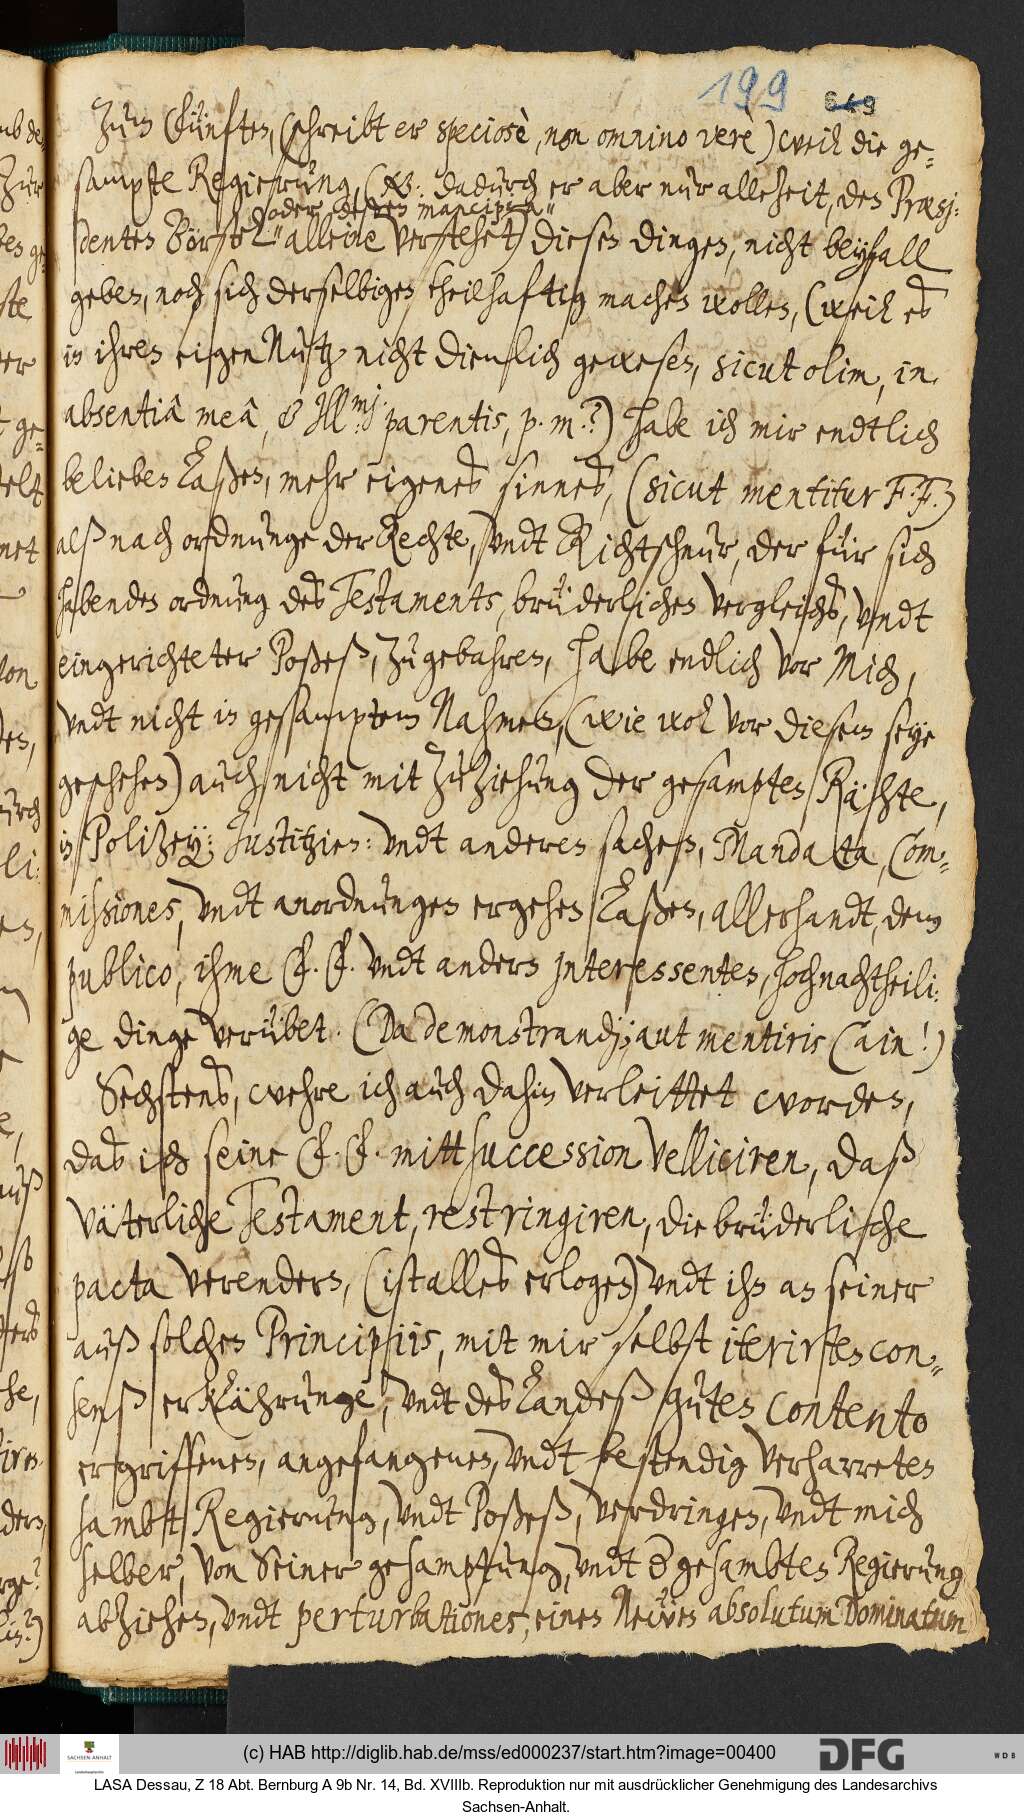 199 649
Zum Fünften, (schreibt er speciosè, non omnino verè) weil die ge-
sampte Regierung, (NB: dadurch er aber nur allezeit, den Præsj:
oder dessen mancipia"
denten Börstel" alleine verstehet) diesen dingen, nicht beyfall
geben, noch sich derselbigen theilhaftig machen wollen, (weil es
in ihren eigen Nutz nicht dienlich gewesen, sicut olim, in
absentiâ meâ, & Illmj. parentis, p. m.?) habe ich mir endtlich
belieben Laßen, mehr eigenes sinnes, (sicut mentitur F. F.)
alß nach ordnunge der Rechte, undt Richtschnur, der für sich
habenden ordnung des Testaments, brüderlichen vergleichs, undt
eingerichteter Poßeß, zu gebahren, habe endlich vor Mich,
undt nicht in gesamptem Nahmen, (wie wol vor diesem seye
geschehen) auch nicht mit Zuziehung der gesampten Rähte,
in Polizey: Justitzien: undt anderen sachen, Mandata, Com-
missiones, undt anordnungen ergehen Laßen, allerhandt, dem
publico, ihme F. F. undt andern jnteressenten, hochnachtheili:
ge dinge verübet. (Da demonstrandj, aut mentiris Cain!)
Sechstens, wehre ich auch dahin verleittet worden,
das ich seine F. F. mitt succession velliciren, daß
väterliche Testament, restringiren, die brüderlische
pacta verendern, (ist alles erlogen) undt ihn an seiner
auß solchen Principiis, mit mir selbst iterirten con-
senß erklährunge, undt des Landeß guten contento
ergriffenen, angefangenen, undt bestendig verharreten
sambtt Regierung, undt Poßeß, verdringen, undt mich
selber, von Seiner gesampttung, undt der gesambten Regierung
abziehen, undt perturbationes, einen Neuen absolutum Dominatum
(c) HAB http://diglib.hab.de/mss/ed000237/start.htm?image=00400
DFG
WDB
SACHSEN-ANHALT
LASA Dessau, Z 18 Abt. Bernburg A 9b Nr. 14, Bd. XVIIIb. Reproduktion nur mit ausdrücklicher Genehmigung des Landesarchivs
Sachsen-Anhalt.